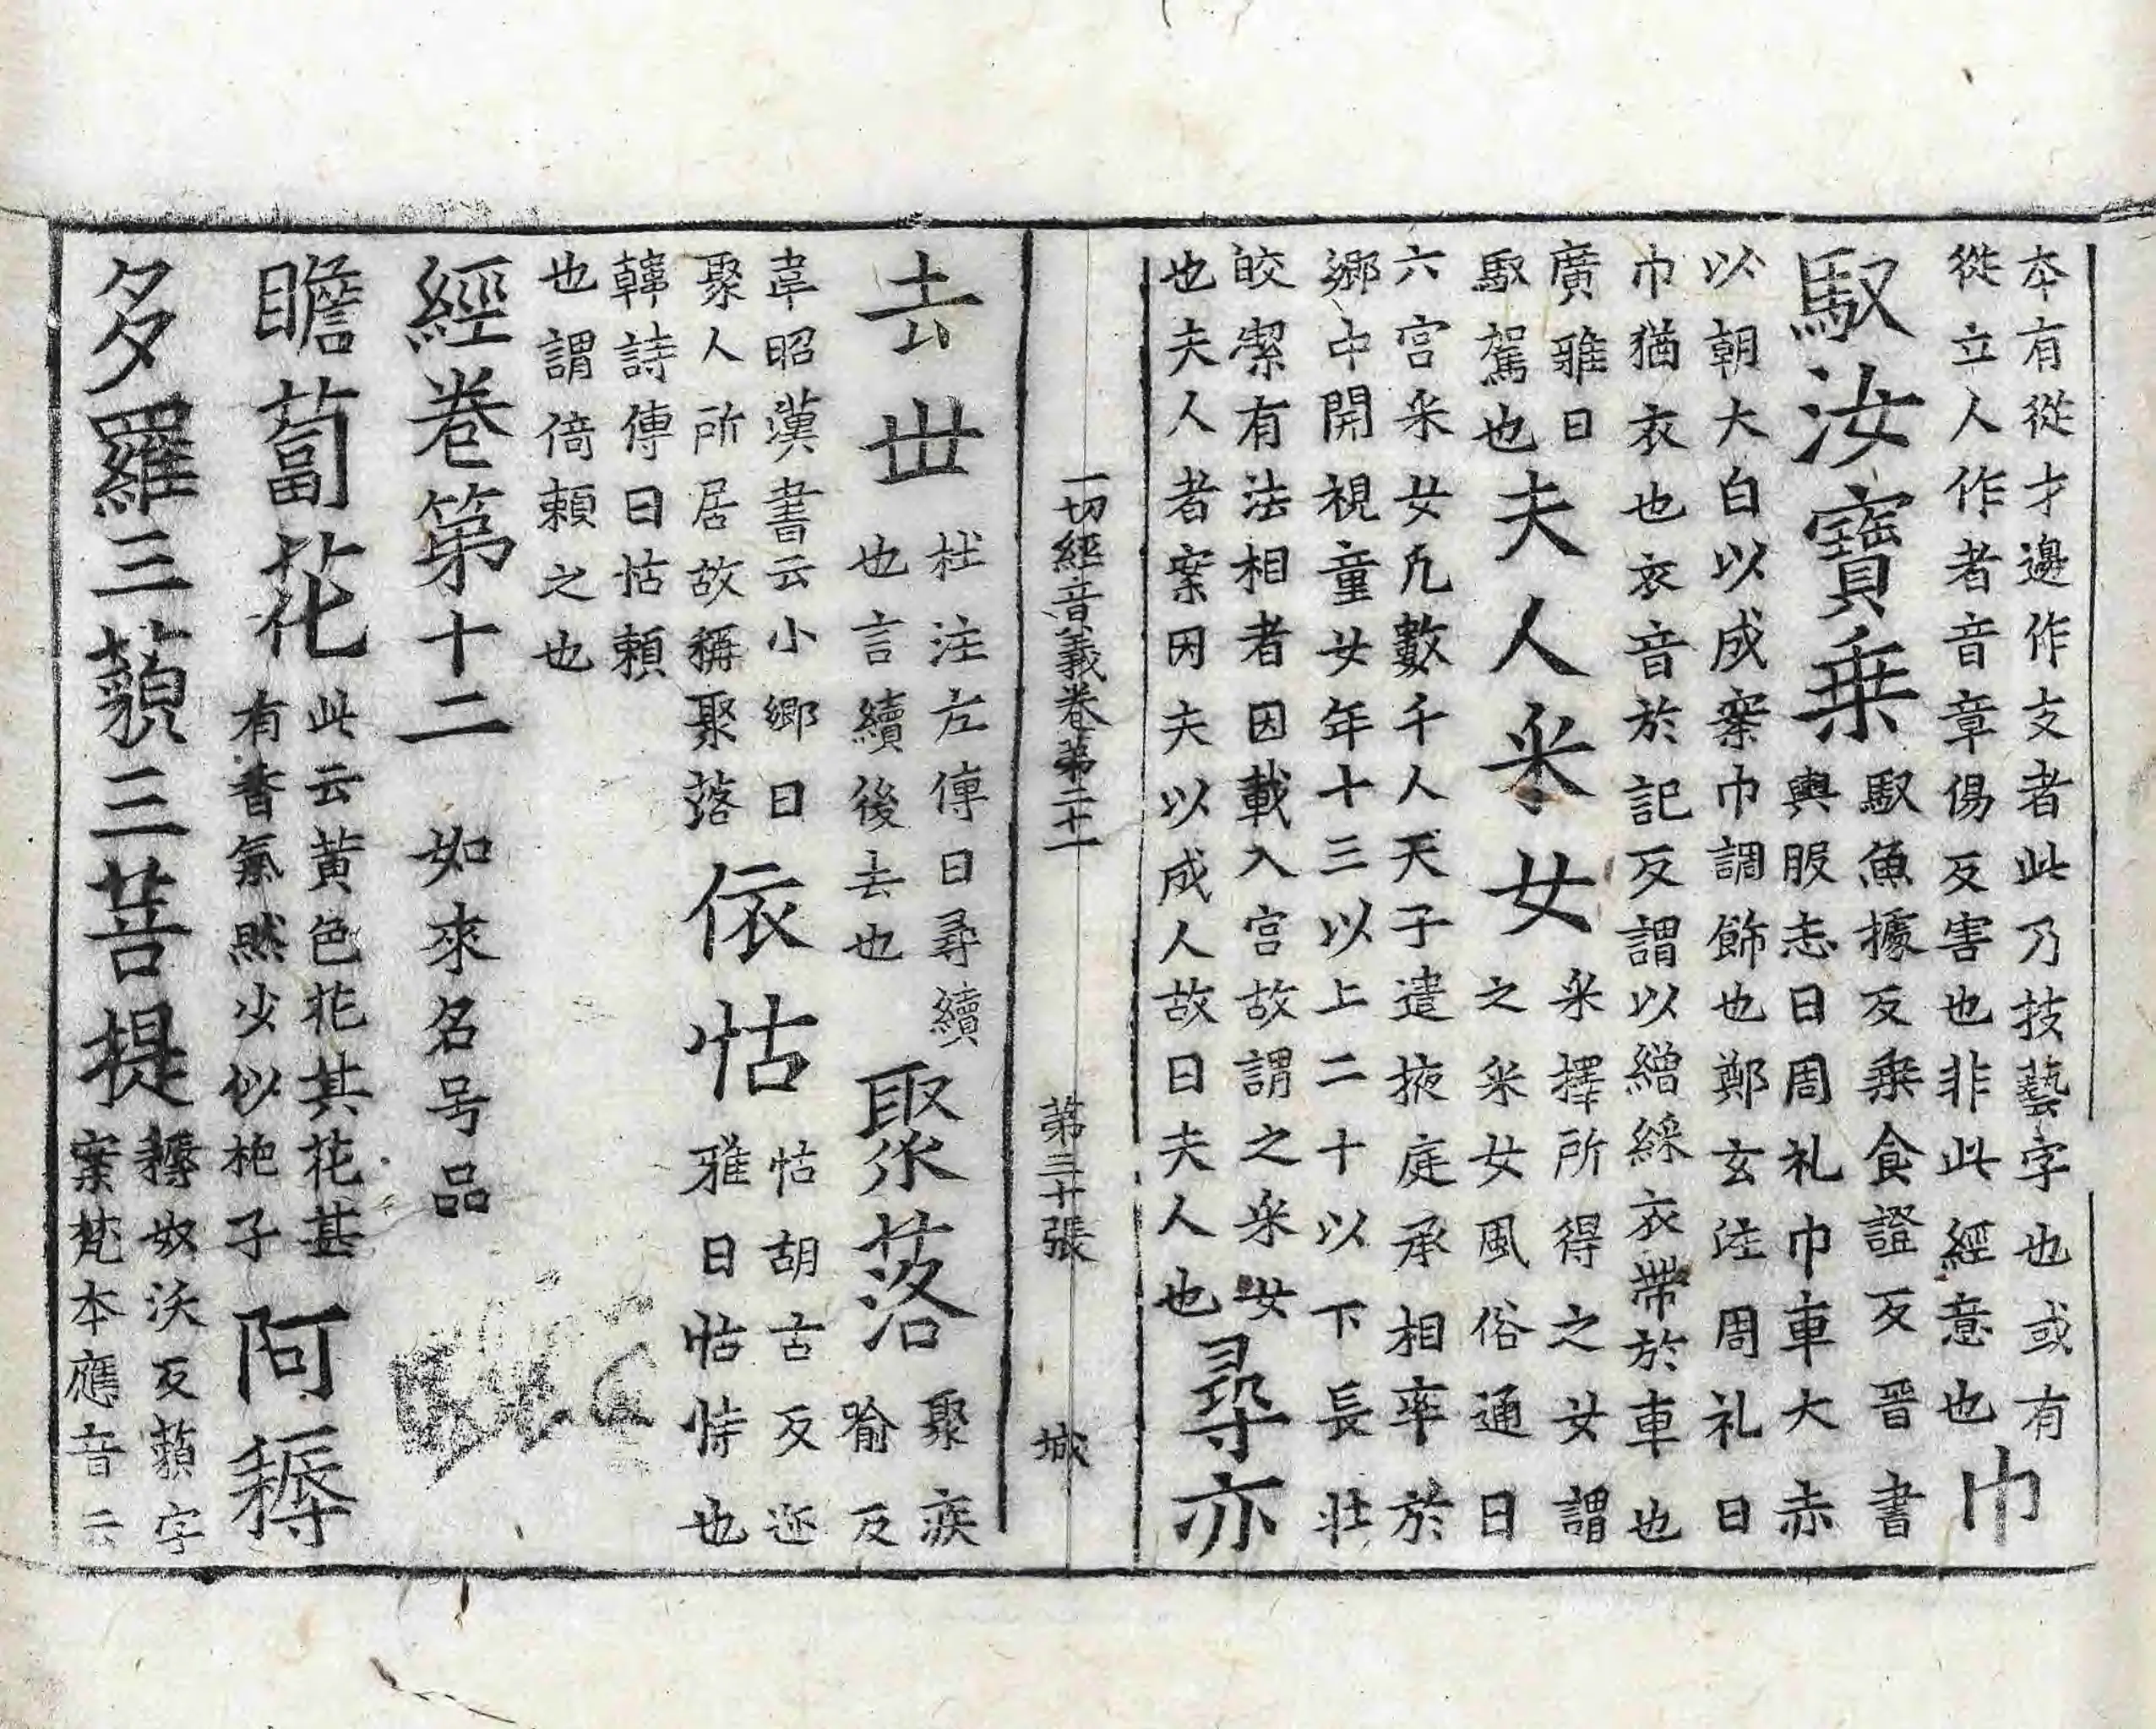 本有從才邊作支者此乃技藝字也或有
從立人作者音章傷反害也非此經意也巾
馭汝寶乗馭魚據反乗食證反晉書
輿服志曰周礼巾車大赤
以朝大白以戎案巾調飾也鄭玄注周礼曰
巾猶衣也衣音於記反謂以繒綵衣帶於車也
廣雅曰
馭駕也
夫人采女采擇所得之女謂
之采女風俗通曰
六宮采女凡數千人天子遣掖庭承相率於
鄉中開視童女年十三以上二十以下長壯
皎潔有法相者因載入宮故謂之采女
也夫人者案因夫以成人故曰夫人也
尋亦
去世杜注左傳曰尋續
也言續後去也
聚落聚疾
喻反
韋昭漢書云小鄉曰
聚人所居故稱聚落
依怙怙胡古反迩
雅曰怙恃也
韓詩傳曰怙賴
也謂倚賴之也
經卷第十二 如來名号品
瞻蔔花此云黃色花其花甚
有香氣然少似梔子
阿耨
多羅三藐三菩提耨奴沃反藐字
案梵本應音云
一切經音義卷第二十一 第三十張 城